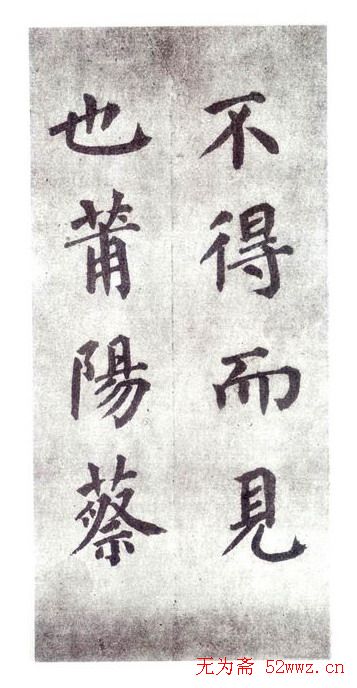 不得而見
也莆陽蔡
无为斋 52wwz.cn